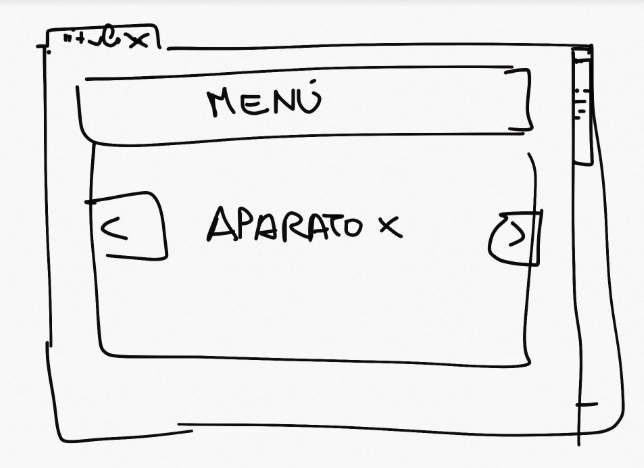 MENÚ
< APARATO X >